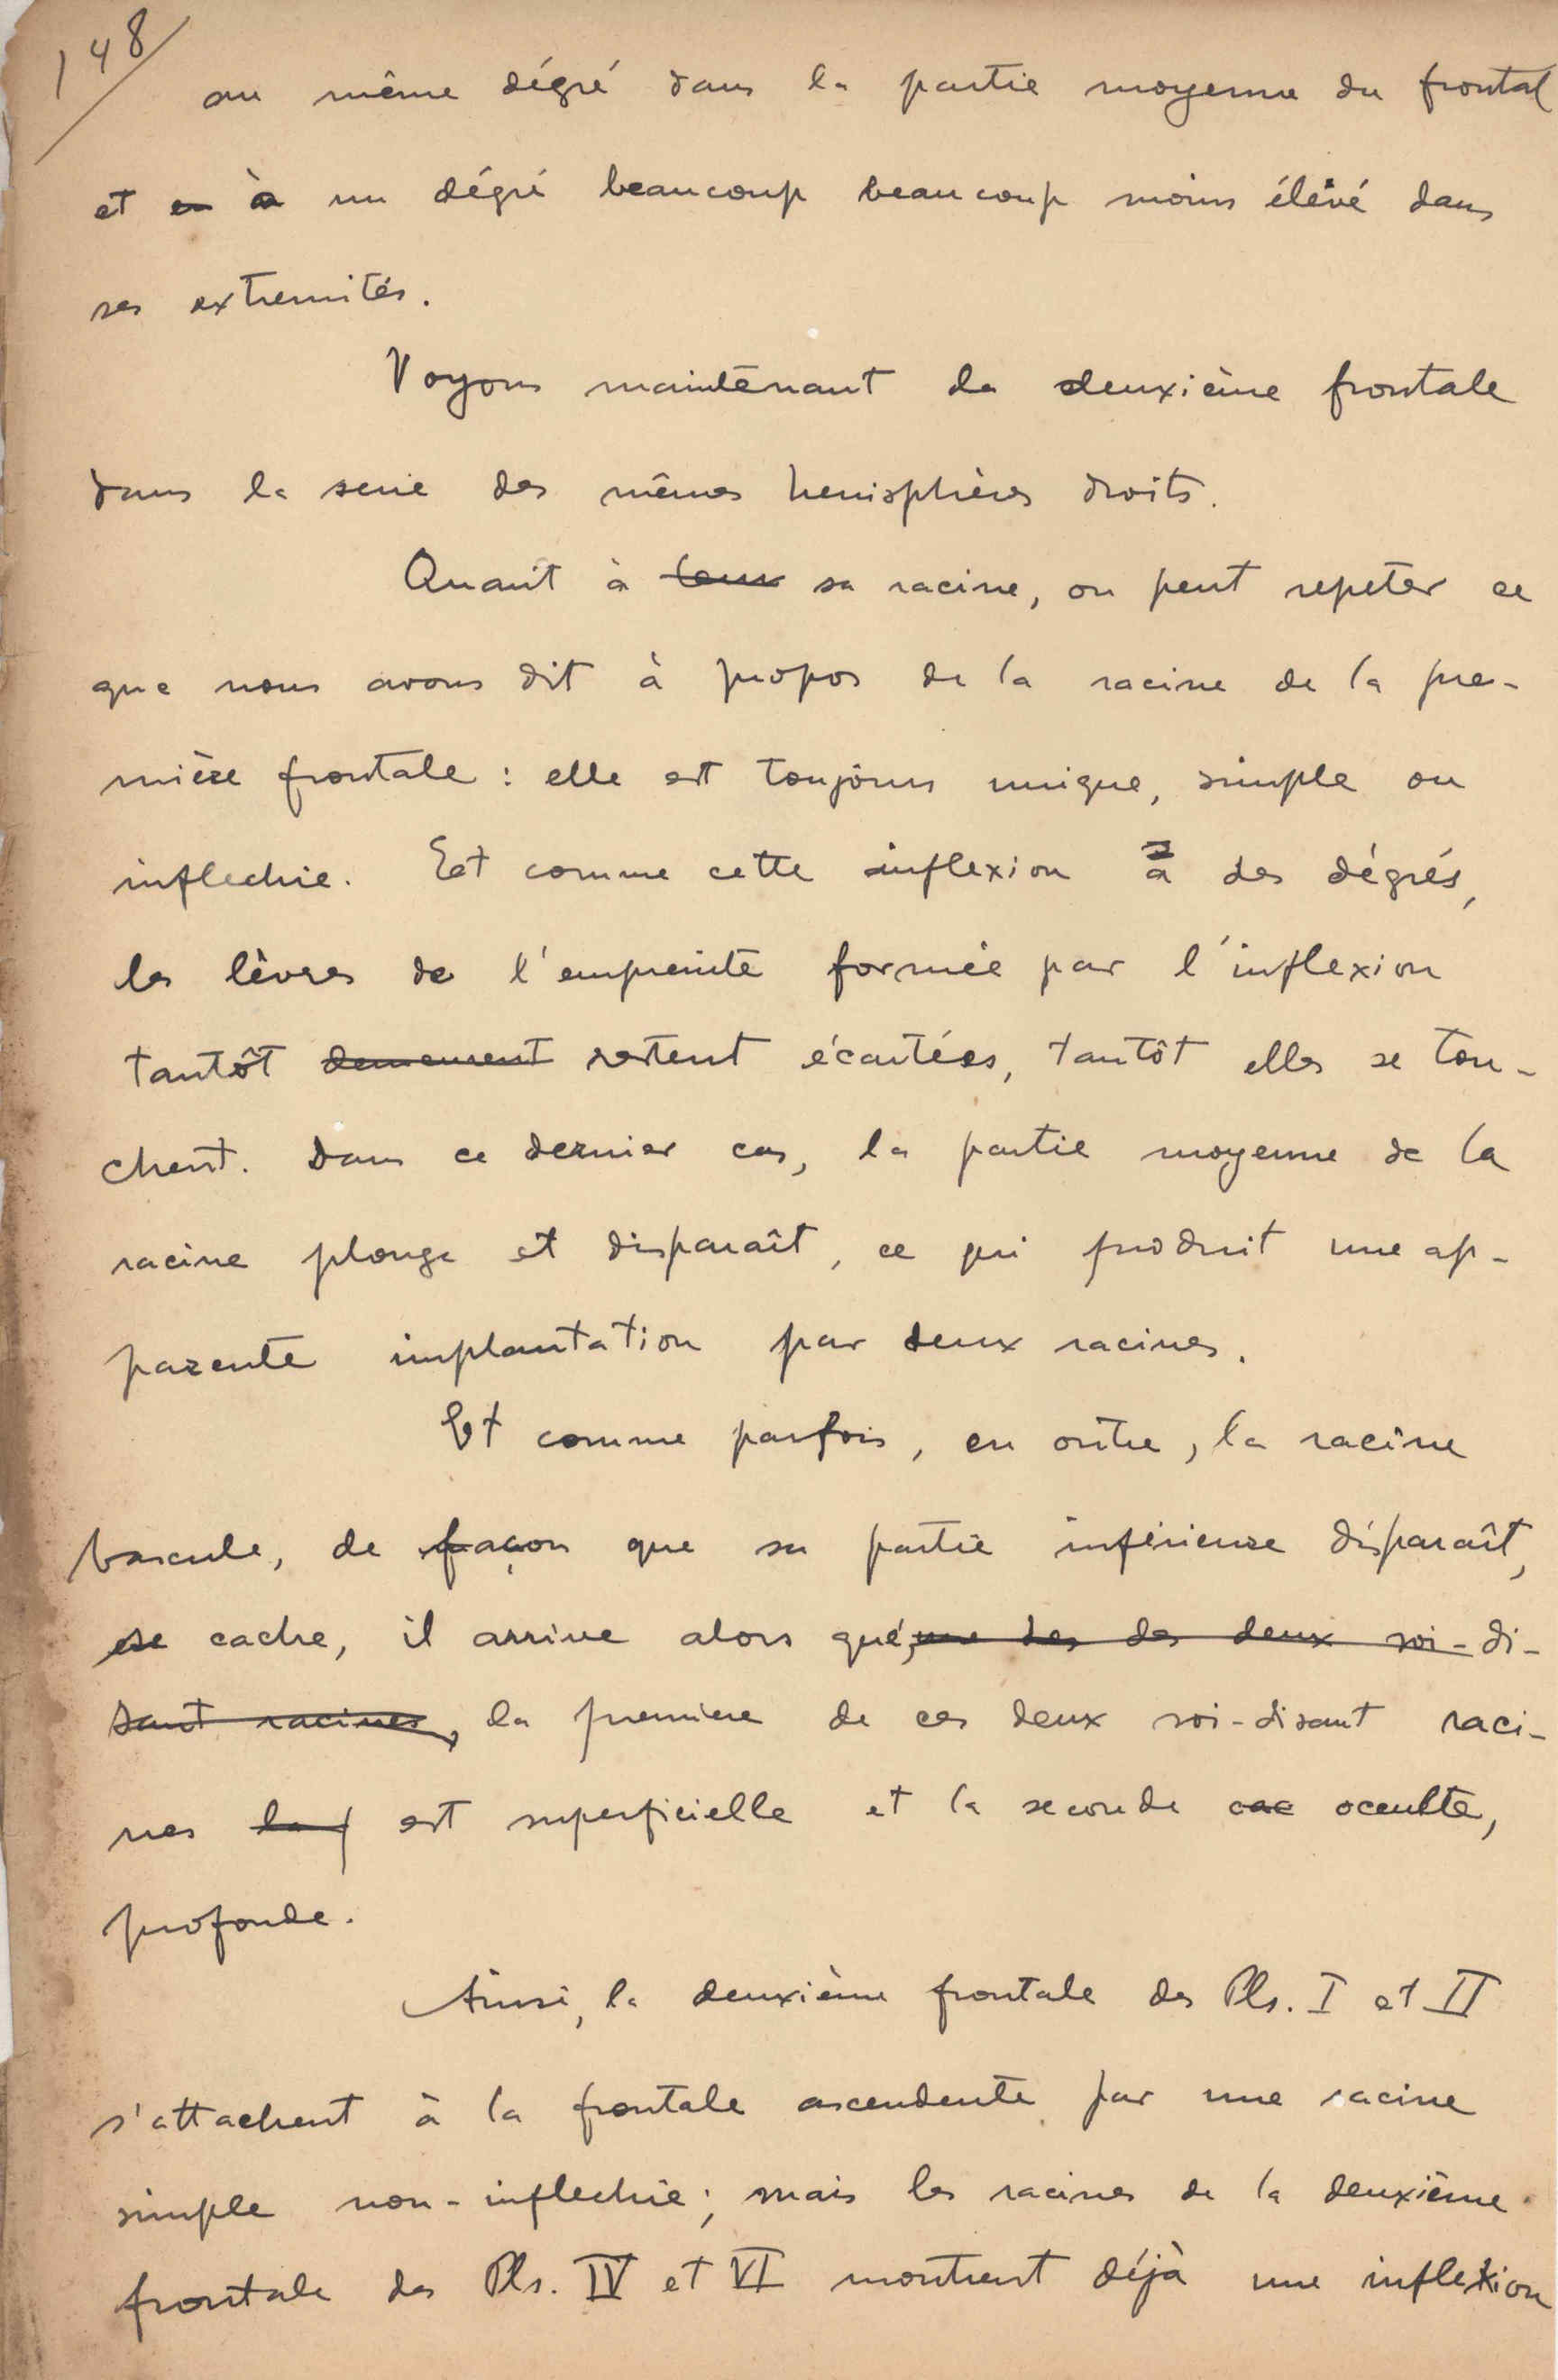 148/
au même dégré dans la partie moyenne du frontal
et à un dégré beaucoup beaucoup moins élévé dans
ses extremités.
Voyons maintenant la deuxième frontale
dans la serie des mêmes hemisphères droits.
Quant à leur sa racine, on peut repeter ce
que nous avons dit à propos de la racine de la pre-
mière frontale : elle est toujours unique, simple ou
inflechie. Et comme cette inflexion a des dégrés,
les lèvres de l'empreinte formée par l'inflexion
tantôt demeurent restent écartées, tantôt elles se tou-
chent. Dans ce dernier cas, la partie moyenne de la
racine plonge et disparaît, ce qui produit une ap-
parente implantation par deux racines.
Et comme parfois, en outre, la racine
bascule, de façon que sa partie inférieure disparaît,
se cache, il arrive alors que, une des des deux soi-di-
sant racines, la premiere de ces deux soi-disant raci-
nes est superficielle et la seconde occulte,
profonde.
Ainsi, la deuxième frontale des Pls. I et II
s'attachent à la frontale ascendente par une racine
simple non-inflechie; mais les racines de la deuxième
frontale des Pls. IV et VI montrent déjà une inflexion